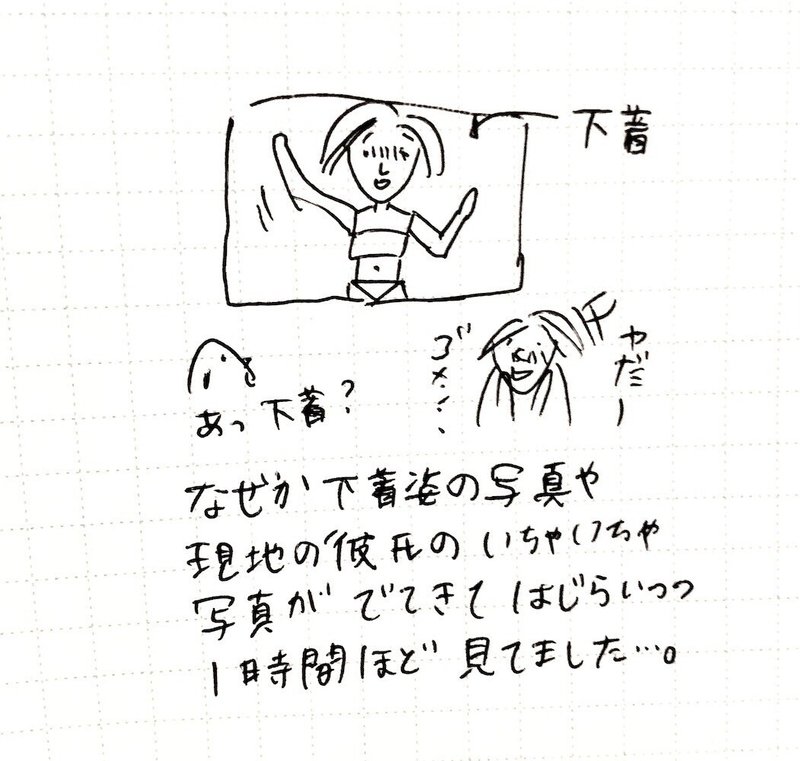 下着
ヤだミー
ゴメン、、
あっ下着?
なぜか下着姿の写真や
現地の彼氏のいちゃいちゃ
写真がでてきてはじらいつつ
1時間ほど見てました…。